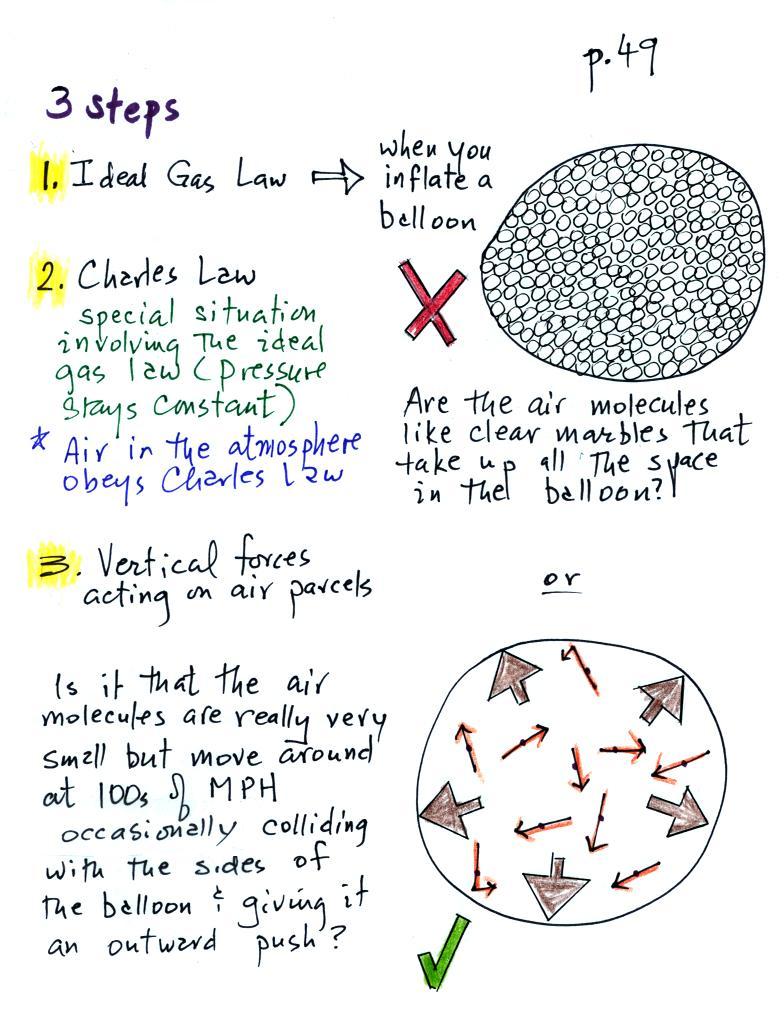 p.49
3 steps
1. Ideal Gas Law ⇒ when you
inflate a
balloon
2. Charles Law
special situation
involving the ideal
gas law (pressure
stays constant)
* Air in the atmosphere
obeys Charles Law
Are the air molecules
like clear marbles that
take up all the space
in the balloon?
3. Vertical forces
acting on air parcels
or
Is it that the air
molecules are really very
small but move around
at 100s of MPH
occasionally colliding
with the sides of
the balloon & giving it
an outward push?